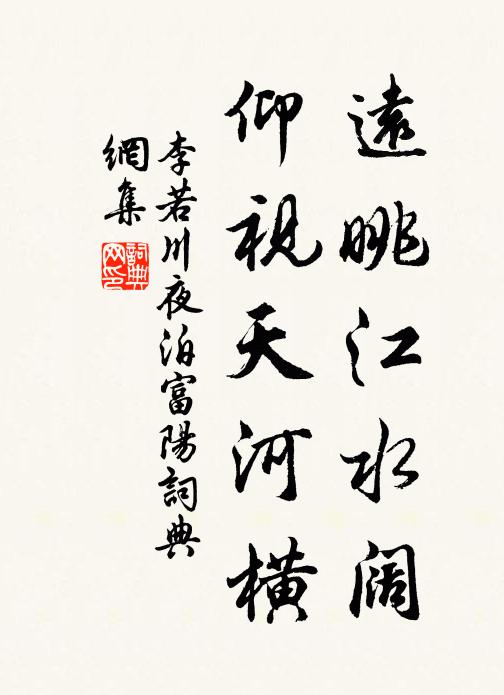 遠眺江水阔
仰視天河橫
李若川夜泊富陽詞典
網集
詞典
网印